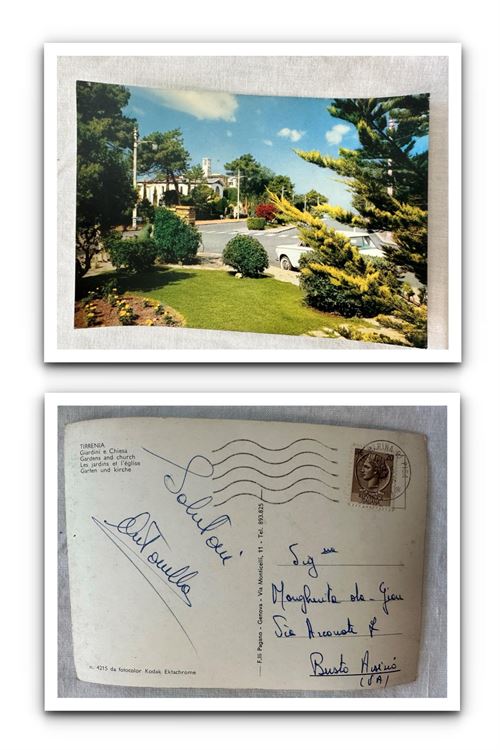 TIRRENIA
Giardini e Chiesa
Gardens and church
Les jardins et l'église
Garten und kirche
Salutoni
Antonella
F.lli Pagano - Genova - Via Monticelli, 11 - Tel. 893.825
n. 4215 da fotocolor Kodak Ektachrome
Sig
Margherita
Via Arconate 7
Busto Arsizio
(VA)